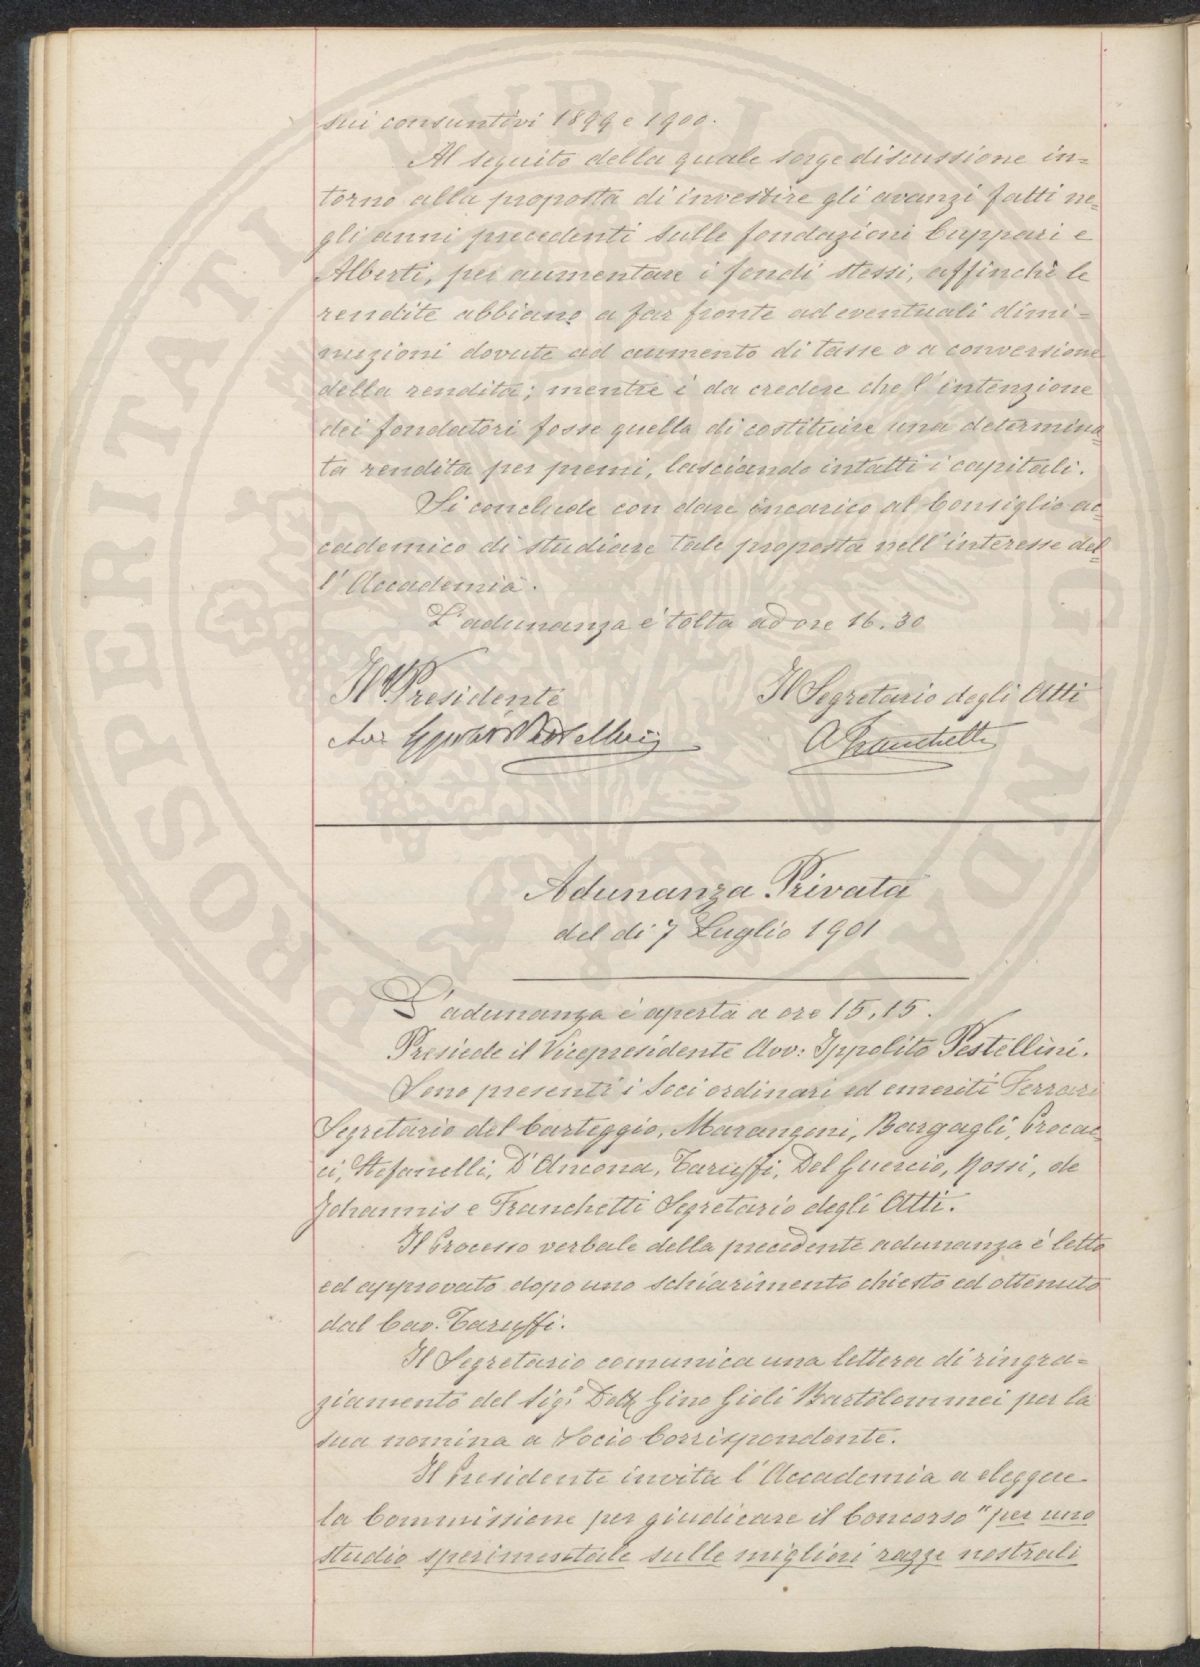 sui consuntivi 1899 e 1900.
Al seguito della quale sorge discussione in=
torno alla proposta di investire gli avanzi fatti ne=
gli anni precedenti sulle fondazioni Cuppari e
Alberti, per aumentare i fondi stessi, affinchè le
rendite abbiano a far fronte ad eventuali dimi=
nuzioni dovute ad aumento di tasse o a conversione
della rendita; mentre è da credere che l'intenzione
dei fondatori fosse quella di costituire una determina=
ta rendita per premi, lasciando intatti i capitali.
Si conclude con dare incarico al Consiglio ac=
cademico di studiare tale proposta nell'interesse del=
l'Accademia.
L'adunanza è tolta ad ore 16.30
Il V. Presidente
Il Segretario degli Atti
Avv. Ippolito Pestellini
A Franchetti
Adunanza Privata
del dì 7 Luglio 1901
L'adunanza è aperta a ore 15,15.
Presiede il Vicepresidente Avv: Ippolito Pestellini.
Sono presenti i Soci ordinari ed emeriti Ferrari
Segretario del Carteggio, Marangoni, Bargagli, Procac=
ci, Stefanelli, D'Ancona, Taruffi, Del Guercio, Rossi, de
Johannis e Franchetti Segretario degli Atti.
Il Processo verbale della precedente adunanza è letto
ed approvato dopo uno schiarimento chiesto ed ottenuto
dal Cav. Taruffi.
Il Segretario comunica una lettera di ringra=
ziamento del Sigr Dott Gino Gioli Bartolommei per la
sua nomina a Socio Corrispondente.
Il Presidente invita l'Accademia a eleggere
la Commissione per giudicare il Concorso "per uno
studio sperimentale sulle migliori razze nostrali
PROSPERITATI PVBLICAE AVGENDAE